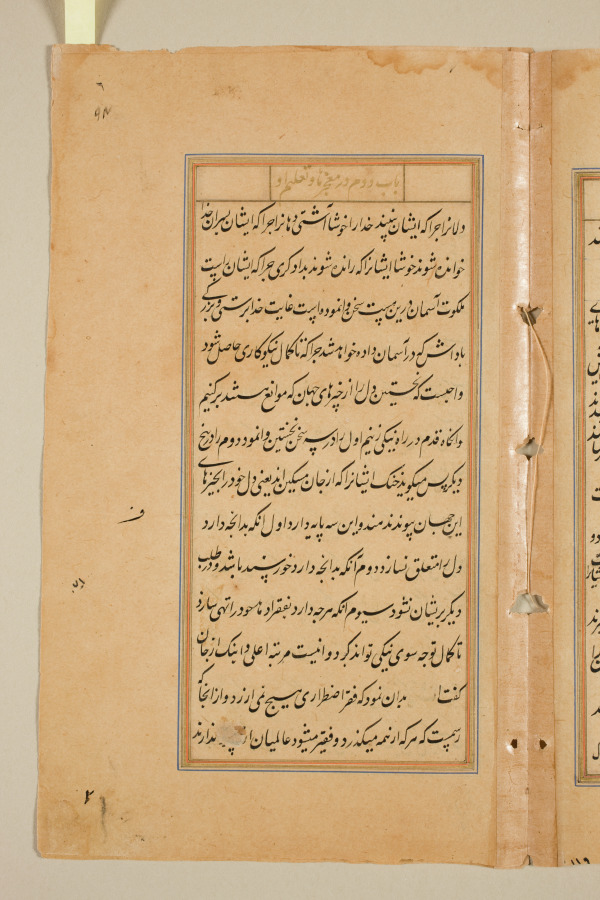 باب دوم در معجزها و تعلیم او
دلانرا چرا که ایشان بینند خدا را خوشا آشتی دهانرا چرا که ایشان پسران خدا
خوانده شوند خوشا ایشانرا که رانده شوند بدادکری چرا که ایشان راست
ملکوت آسمان درین بیست سخن وانموده است غایت خدا پرستی و بزرکی
پاداش که در آسمان داده خواهد شد چرا که تا کمال نیکوکاری حاصل شود
واجبست که نخستین دل را از چیزهای جهان که موانع هستند برکنیم
وانکاه قدم در راه نیکی زنیم اول را در سه سخن نخستین وانمود دوم را در پنج
دیکر پس میکوید خنک ایشانرا که از جان مسکین اند یعنی دل خود را بچیزهای
این جهان پیوند ندهند و این سه پایه دارد اول آنکه بدانچه دارد
دل را متعلق نسازد دوم آنکه بدانچه دارد خورسند باشد و در طلب
دیکر پریشان نشود سیوم آنکه هرچه دارد بفقرا دهد خود را تهی سازد
تا کمال توجه سوی نیکی تواند کرد و اینست مرتبه اعلی و اینک از جان
کفت بدان نمود که فقر اضطراری هیچ نمی ارزد و از آنجا که
رسمست که هر که از همه میکذرد و فقیر میشود عالمیان او ندارند